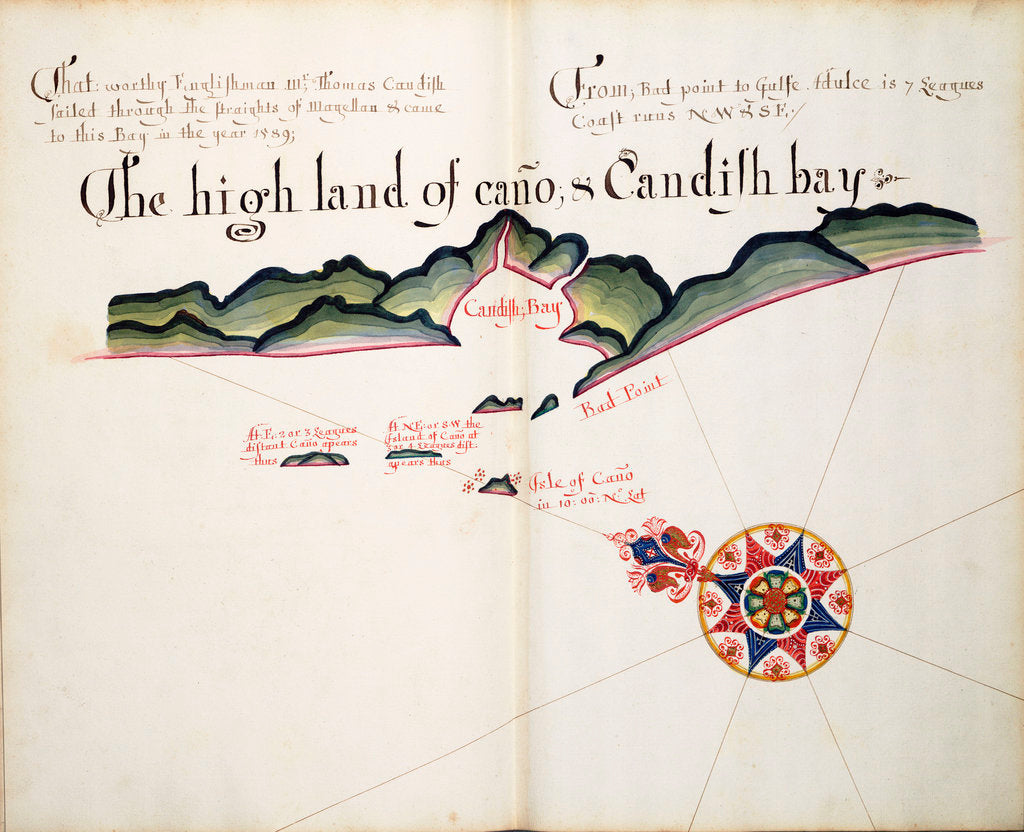 That: worthy Englishman Mr. Thomas Candish
sailed through the straights of Magellan & came
to this Bay in the year 1589;
From; Bad point to Gulfe Adulce is 7 Leagues
Coast runs NW & SE:/
The high land of caño; & Candish bay
Candish; Bay
Bad Point
At E: 2 or 3 Leagues
distant Caño apears
thus
At NE: or SW the
Island of Caño at
3 or 4 Leagues dist:
apears thus
Isle of Caño
in 10: 00: No Lat